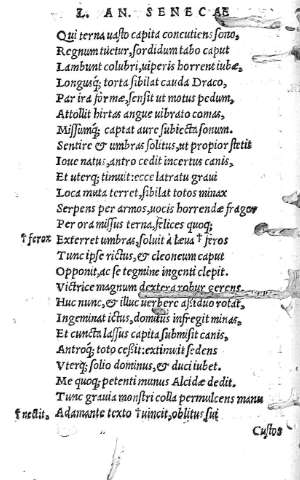 L. AN. SENECAE
Qui terna uasto capita concutiens sono,
Regnum tuetur, sordidum tabo caput
Lambunt colubri, uiperis horrent iubæ,
Longusq; torta sibilat cauda Draco,
Par ira formæ, sensit ut motus pedum,
Attollit hirtas angue uibrato comas,
Missumq; captat aure subiecta sonum.
Sentire & umbras solitus, ut propior stetit
Ioue natus, antro cedit incertus canis,
Et uterq; timuit: ecce latratu graui
Loca muta terret, sibilat totos minax
Serpens per armos, uocis horrendæ fragor
Per ora missus terna, felices quoq;
† ferox Exterret umbras, soluit à leua † feros
Tunc ipse rictus, & cleoneum caput
Opponit, ac se tegmine ingenti clepit.
Victrice magnum dextera robur gerens
Huc nunc, & illuc uerbere assiduo rotat,
Ingeminat ictus, domitus infregit minas,
Et cuncta lassus capita submisit canis,
Antroq; toto cessit: extimuit sedens
Vterq; solio dominus, & duci iubet.
Me quoq; petenti munus Alcidæ dedit.
Tunc grauia monstri colla permulcens manu
† nectit, Adamante texto † uincit, oblitus sui
Custos